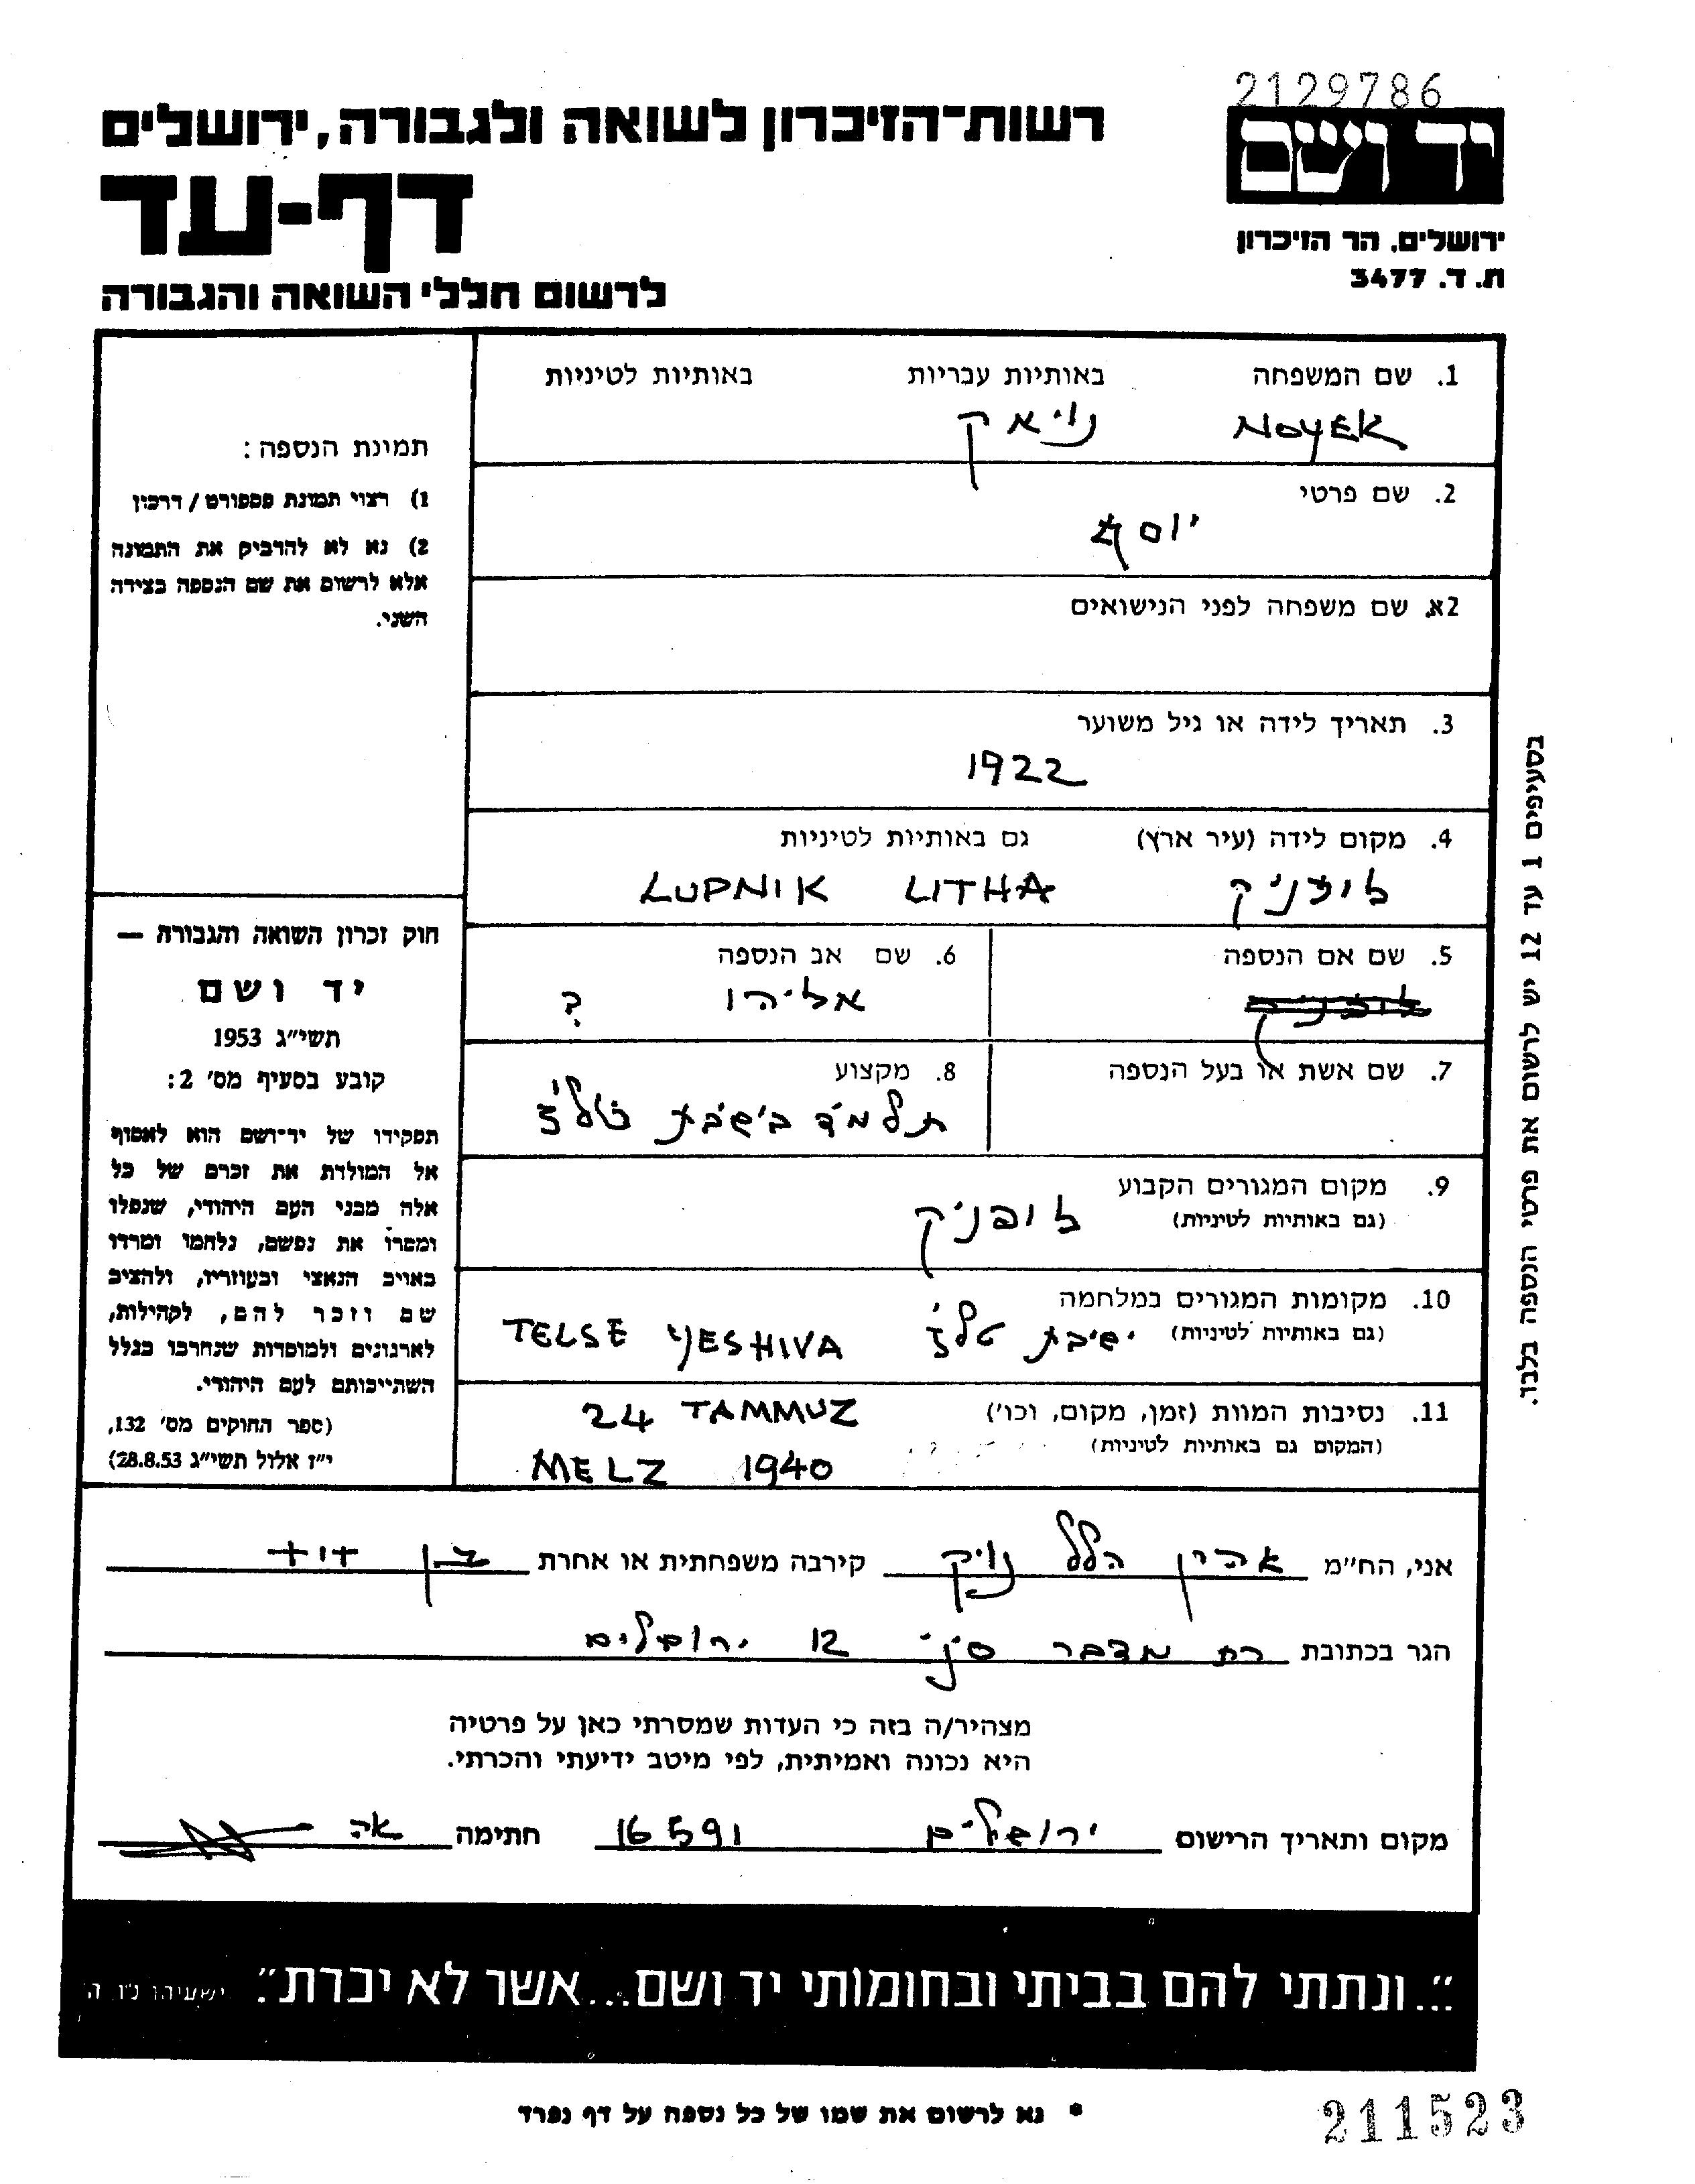 2129786
רשות-הזיכרון לשואה ולגבורה, ירושלים
יד ושם
דף-עד
ירושלים, הר הזיכרון
ת. ד. 3477
לרשום חללי השואה והגבורה
1. שם המשפחה באותיות עבריות באותיות לטיניות
NOYEK נויאק
2. שם פרטי
יוסף
2א. שם משפחה לפני הנישואים
3. תאריך לידה או גיל משוער
1922
4. מקום לידה (עיר ארץ) גם באותיות לטיניות
לופניק LITHA LUPNIK
5. שם אם הנספה
6. שם אב הנספה
אליהו ?
7. שם אשת או בעל הנספה
8. מקצוע
תלמיד בישיבת טלז
9. מקום המגורים הקבוע
(גם באותיות לטיניות)
לופניק
10. מקומות המגורים במלחמה
(גם באותיות לטיניות)
ישיבת טלז TELSE YESHIVA
11. נסיבות המוות (זמן, מקום, וכו')
(המקום גם באותיות לטיניות)
24 TAMMUZ
MELZ 1940
תמונת הנספה:
1) רצוי תמונת פספורט / דרכון
2) נא לא להדביק את התמונה
אלא לרשום את שם הנספה בצידה
השני.
חוק זכרון השואה והגבורה —
יד ושם
תשי״ג 1953
קובע בסעיף מס' 2:
תפקידו של יד-ושם הוא לאסוף
אל המולדת את זכרם של כל
אלה מבני העם היהודי, שנפלו
ומסרו את נפשם, נלחמו ומרדו
באויב הנאצי ובעוזריו, ולהציב
שם וזכר להם, לקהילות,
לארגונים ולמוסדות שנחרבו בגלל
השתייכותם לעם היהודי.
(ספר החוקים מס' 132,
י״ז אלול תשי״ג 28.8.53)
בסעיפים 1 עד 12 יש לרשום את פרטי הנספה בלבד.
אני, הח״מ אהרן הלל נויק קירבה משפחתית או אחרת בן דוד
הגר בכתובת רח מדבר סיני 12 ירושלים
מצהיר/ה בזה כי העדות שמסרתי כאן על פרטיה
היא נכונה ואמיתית, לפי מיטב ידיעתי והכרתי.
מקום ותאריך הרישום ירושלים 16 5 91 חתימה אה
״...ונתתי להם בביתי ובחומותי יד ושם...אשר לא יכרת״. ישעיהו נ״ו, ה'
* נא לרשום את שמו של כל נספה על דף נפרד
211523